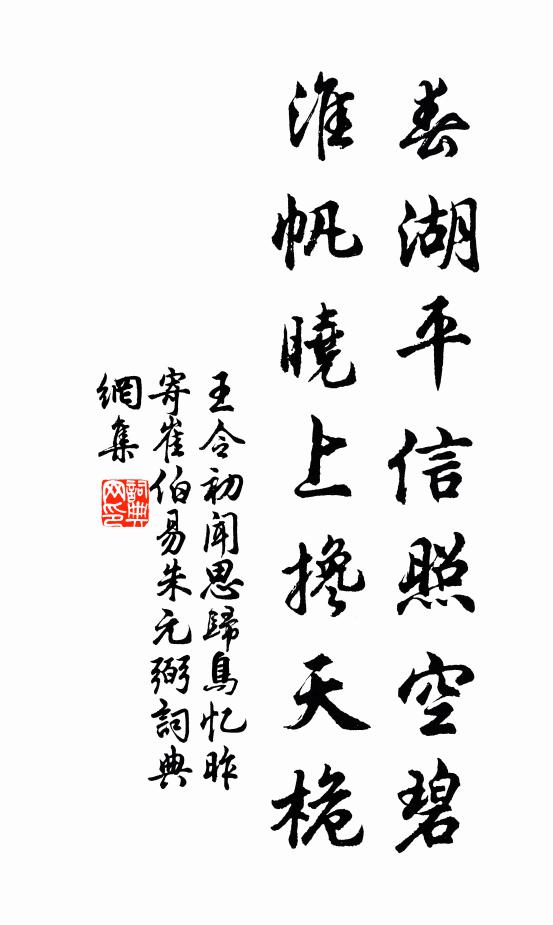 春湖平信照空碧
淮帆曉上搀天桅
王令初闻思歸鳥忆昨
寄崔伯易朱元弼詞典
網集
詞典
网印